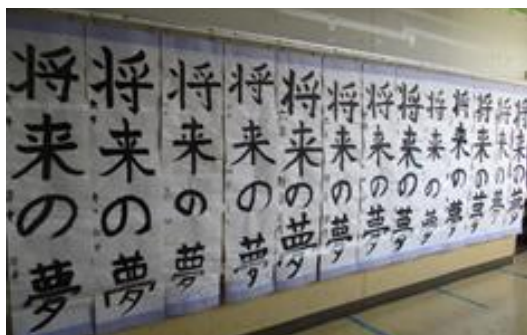 将来の夢
将来の夢
将来の夢
将来の夢
将来の夢
将来の夢
将来の夢
将来の夢
将来の夢
将来の夢
将来の夢
将来の夢
将来の夢